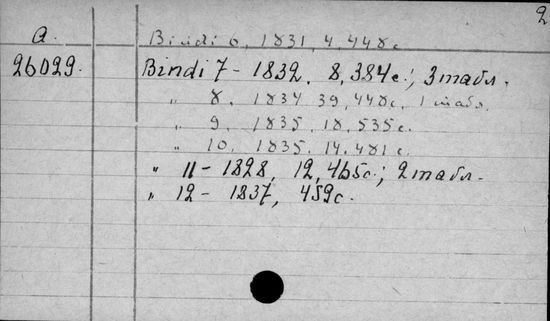 2
A.
26029.
Bindi 6, 1831, 4, 448 c.
Bindi 7 - 1832, 8, 384 c.; 3 табл.
" 8, 1834 39, 448 c, 1 табл.
" 9, 1835, 18, 535 c.
" 10, 1835, 14, 481 c.
" 11 - 1828, 12, 465 c.; 2 табл.
" 12 - 1837, 459 c.